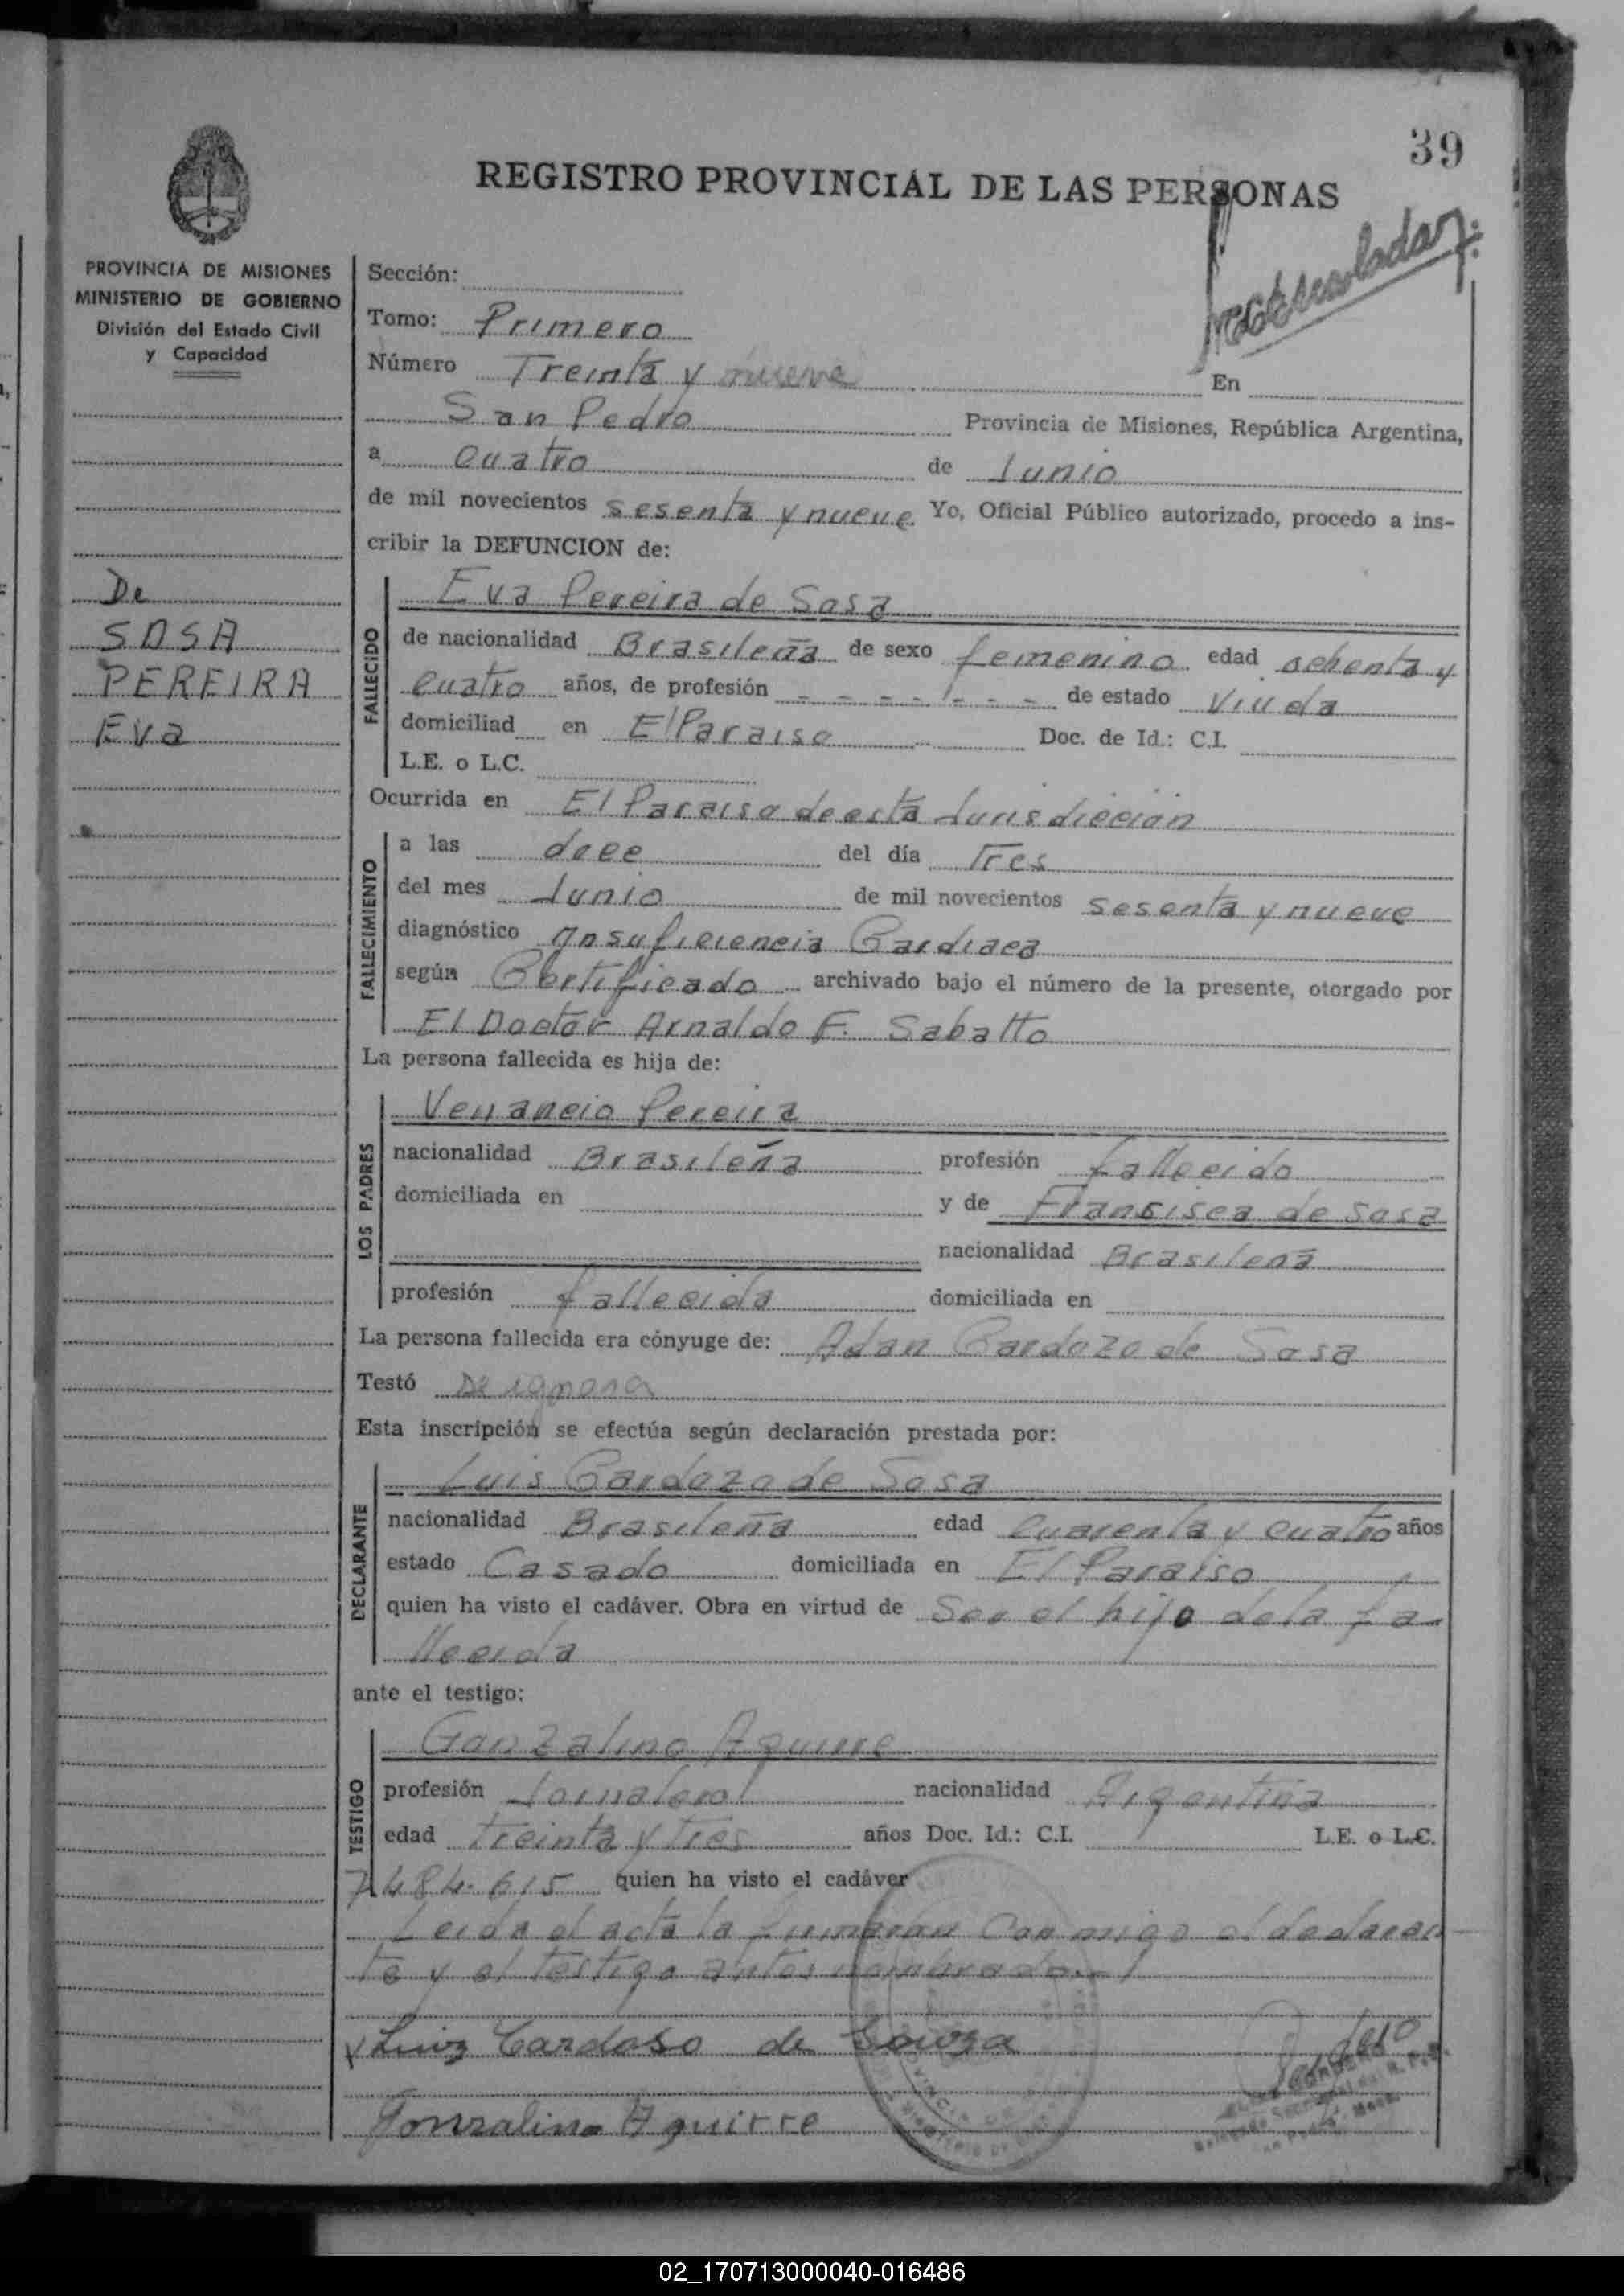 39
REGISTRO PROVINCIAL DE LAS PERSONAS
PROVINCIA DE MISIONES
MINISTERIO DE GOBIERNO
División del Estado Civil
y Capacidad
De
SOSA
PEREIRA
Eva
Sección:
Tomo: Primero
Número Treinta y nueve En
San Pedro Provincia de Misiones, República Argentina,
a Cuatro de Junio
de mil novecientos sesenta y nueve Yo, Oficial Público autorizado, procedo a ins-
cribir la DEFUNCION de:
FALLECIDO
Eva Pereira de Sosa
de nacionalidad Brasileña de sexo femenino edad ochenta y
cuatro años, de profesión - - - - - - - de estado Viuda
domiciliad en El Paraiso Doc. de Id.: C.I.
L.E. o L.C.
Ocurrida en El Paraiso de esta Jurisdiccion
FALLECIMIENTO
a las doce del día Tres
del mes Junio de mil novecientos sesenta y nueve
diagnóstico Insuficiencia Cardiaca
según Certificado archivado bajo el número de la presente, otorgado por
El Doctor Arnaldo F. Sabatto
La persona fallecida es hija de:
LOS PADRES
Venancio Pereira
nacionalidad Brasileña profesión fallecido
domiciliada en y de Francisca de Sosa
nacionalidad Brasileña
profesión fallecida domiciliada en
La persona fallecida era cónyuge de: Adan Cardozo de Sosa
Testó Se ignora
Esta inscripción se efectúa según declaración prestada por:
DECLARANTE
Luis Cardozo de Sosa
nacionalidad Brasileña edad Cuarenta y cuatro años
estado Casado domiciliada en El Paraiso
quien ha visto el cadáver. Obra en virtud de Ser el hijo de la fa
llecida
ante el testigo:
TESTIGO
Gonzalino Aguirre
profesión Jornalero nacionalidad Argentina
edad Treinta y Tres años Doc. Id.: C.I. L.E. o L.C.
7.484.615 quien ha visto el cadáver
Leida el acta la firmaran conmigo el declaran
te y el testigo antes nombrado.-
Luiz Cardoso de Souza
Gonzalino Aguirre
02_170713000040-016486